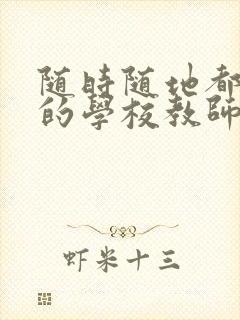 随時随地都
的學校教師
虾米十三